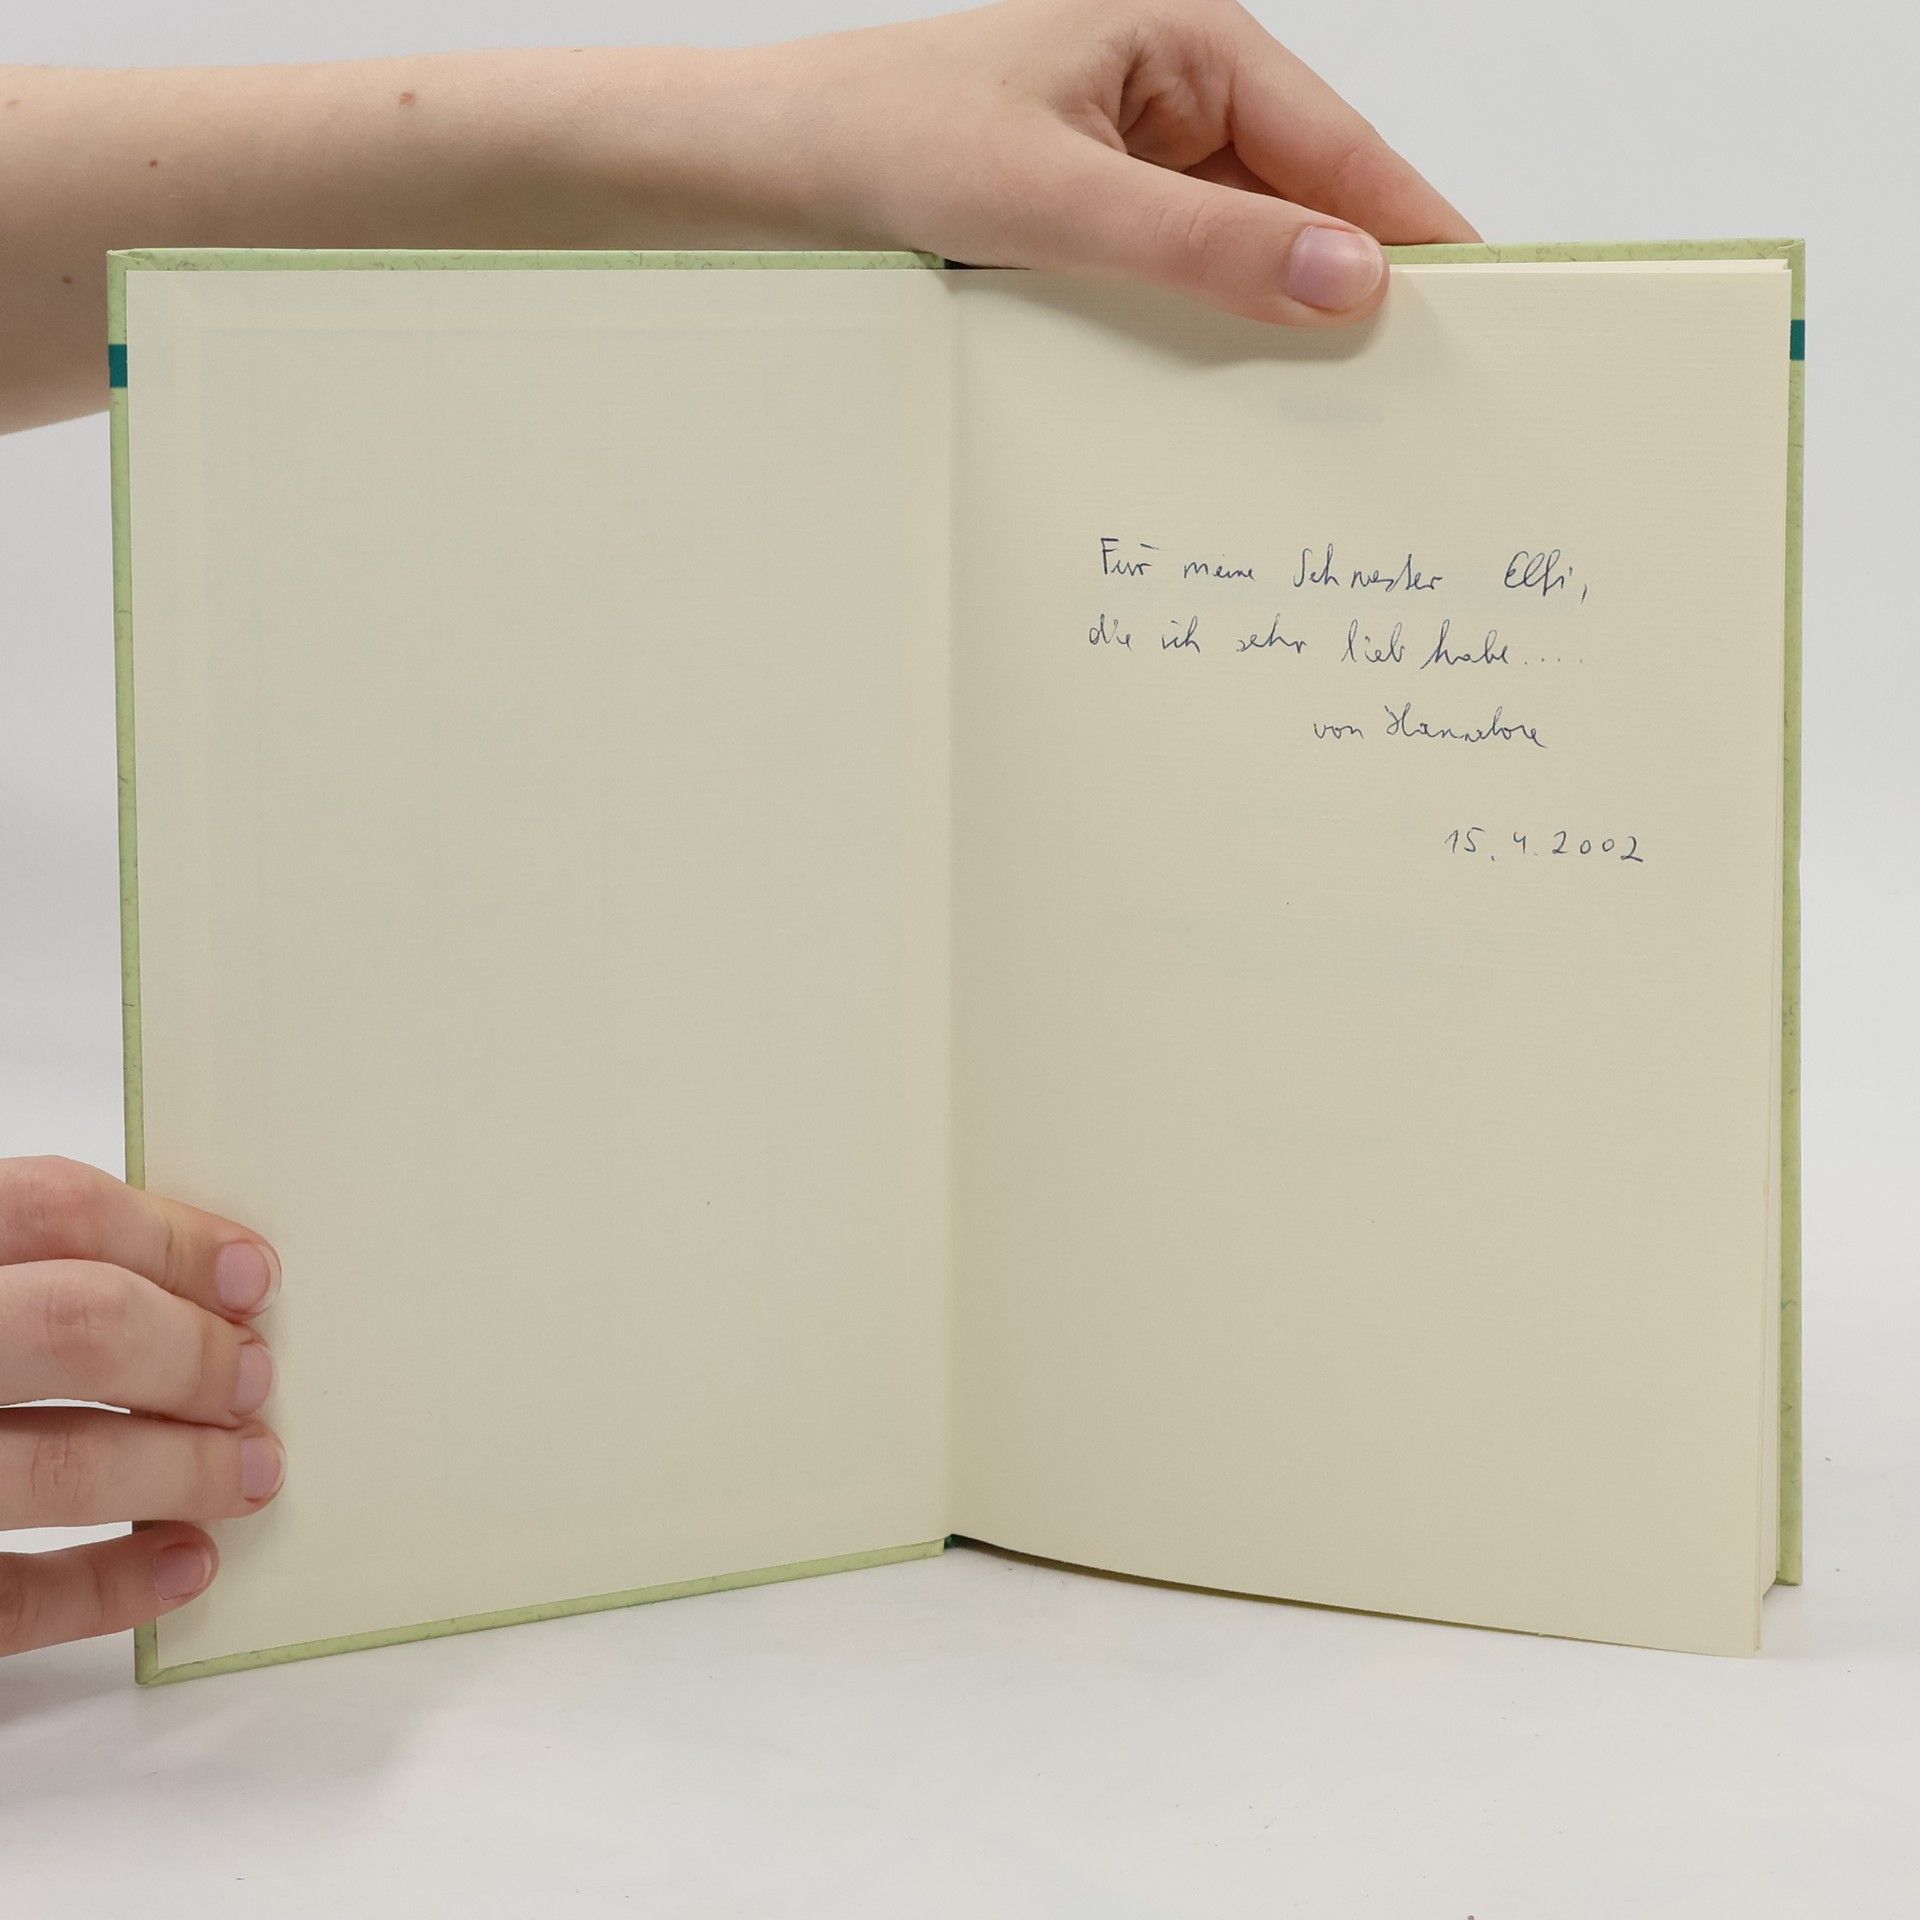 Für meine Schwester Elfi,
die ich sehr lieb habe....
von Hannelore
15.4.2002